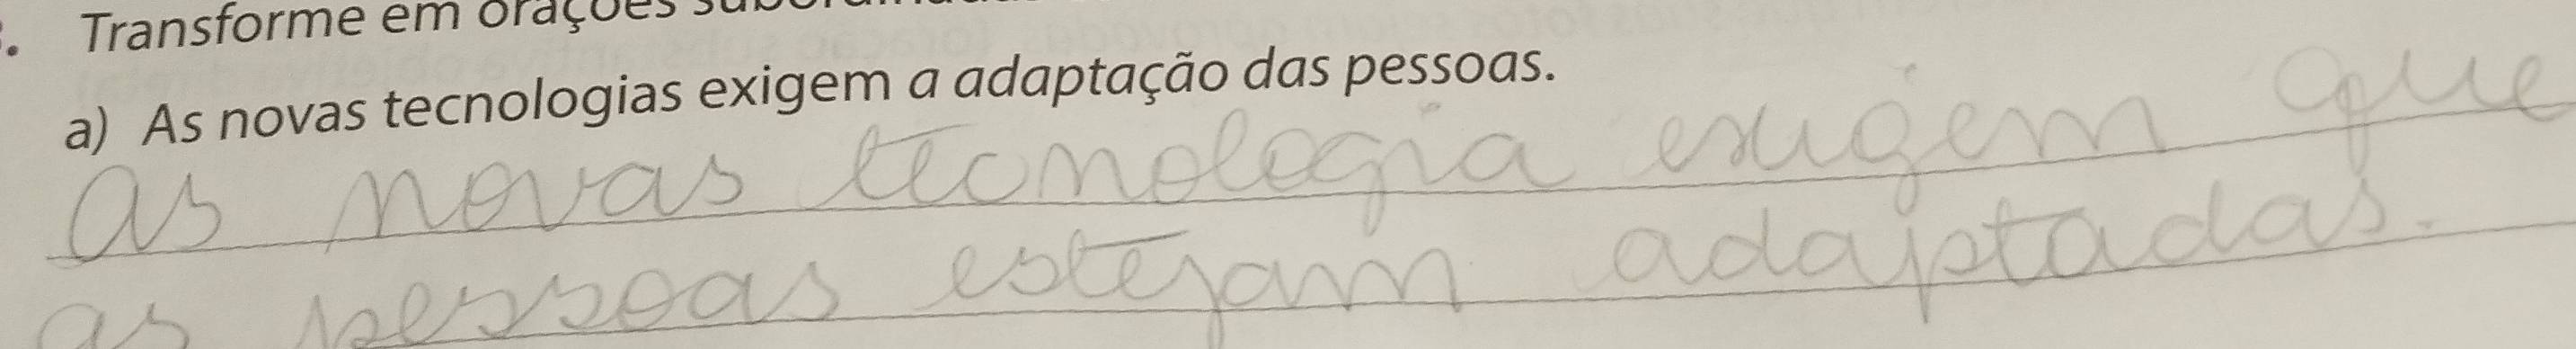 . Transforme em orações
a) As novas tecnologias exigem a adaptação das pessoas.
as novas tecnologia exigem que
as pessoas estejam adaptadas.